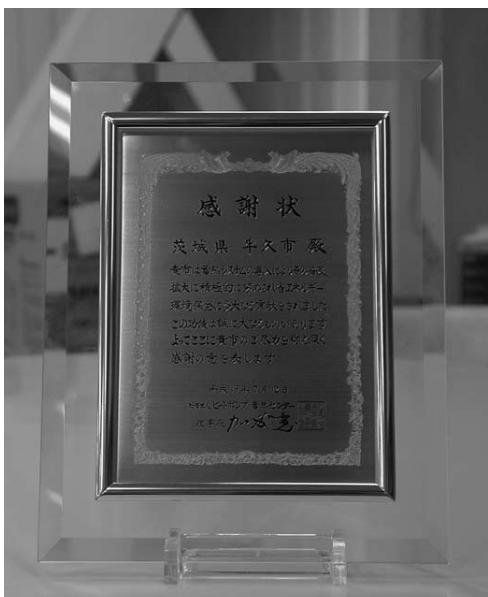 感謝状
茨城県 牛久市 殿
貴市は蓄熱システムの導入により
拡大に積極的に努められ省エネルギー
環境保全に多大な貢献をされました
この功績は誠に大なるものがあります
よってここに貴市のご尽力を称え深く
感謝の意を表します
平成 年7月 日
ヒートポンプ・蓄熱センター
理事長